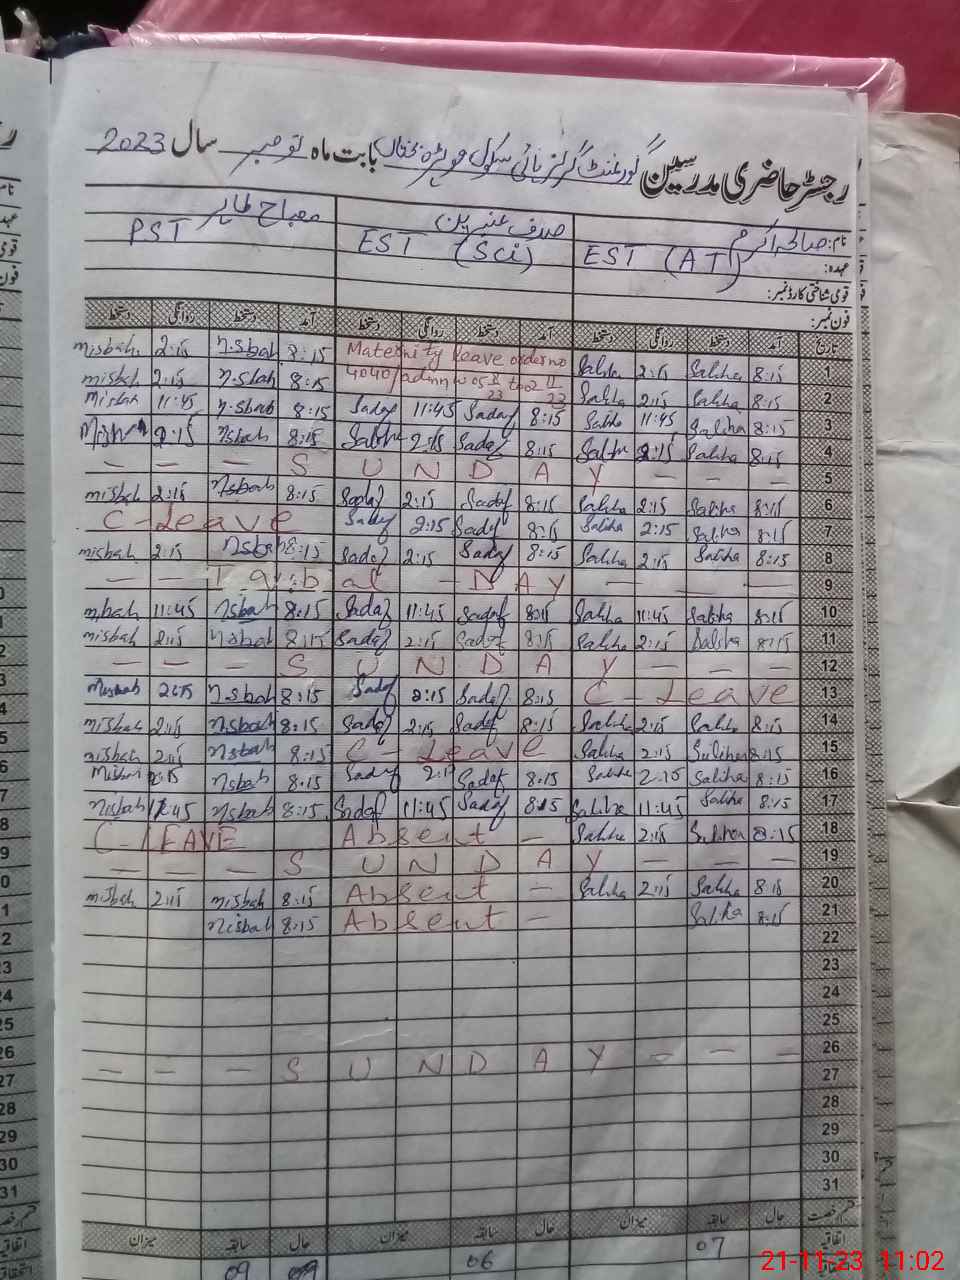 رجسٹر حاضری مدرسین گورنمنٹ گرلز ہائی سکول بابت ماہ نومبر سال 2023
نام: صالحہ اکرم صدف عنبرین مصباح طاہر
عہدہ: EST (AT) EST (Sci) PST
قومی شناختی کارڈ نمبر:
فون نمبر:
تاریخ آمد دستخط روانگی دستخط آمد دستخط روانگی دستخط آمد دستخط روانگی دستخط
misbah 2:15 nisbah 8:15 Maternity leave order no Saliha 2:15 Saliha 8:15 1
misbah 2:15 nisbah 8:15 4040/admn Saliha 2:15 Saliha 8:15 2
Misbah 11:45 nisbah 8:15 Sadaf 11:45 Sadaf 8:15 Saliha 11:45 Saliha 8:15 3
Misbah 2:15 nisbah 8:15 2:15 Sadaf 8:15 Saliha 2:15 Saliha 8:15 4
— — — S U N D A Y — — — 5
misbah 2:15 nisbah 8:15 Sadaf 2:15 Sadaf 8:15 Saliha 2:15 Saliha 8:15 6
C-Leave Sadaf 2:15 Sadaf 8:15 Saliha 2:15 Saliha 8:15 7
misbah 2:15 nisbah 8:15 Sadaf 2:15 Sadaf 8:15 Saliha 2:15 Saliha 8:15 8
— — Iqbal - DAY — — — 9
misbah 11:45 nisbah 8:15 Sadaf 11:45 Sadaf 8:15 Saliha 11:45 Saliha 8:15 10
misbah 2:15 nisbah 8:15 Sadaf 2:15 Sadaf 8:15 Saliha 2:15 Saliha 8:15 11
— — - S U N D A Y — — — 12
Misbah 2:15 nisbah 8:15 Sadaf 2:15 Sadaf 8:15 C - Leave 13
misbah 2:15 nisbah 8:15 Sadaf 2:15 Sadaf 8:15 Saliha 2:15 Saliha 8:15 14
misbah 2:15 nisbah 8:15 C - Leave Saliha 2:15 Saliha 8:15 15
Misbah 2:15 nisbah 8:15 Sadaf 2:15 Sadaf 8:15 Saliha 2:15 Saliha 8:15 16
nisbah 11:45 nisbah 8:15 Sadaf 11:45 Sadaf 8:15 Saliha 11:45 Saliha 8:15 17
C-LEAVE Absent — Saliha 2:15 Saliha 8:15 18
— — - S U N D A Y — — — 19
misbah 2:15 misbah 8:15 Absent — Saliha 2:15 Saliha 8:15 20
nisbah 8:15 Absent — Saliha 8:15 21
22
23
24
25
— — — S U N D A Y — — — 26
27
28
29
30
31
قسم رخصت حال سابقہ میزان حال سابقہ میزان حال سابقہ میزان
اتفاقیہ 07 06 09 09
21-11-23 11:02